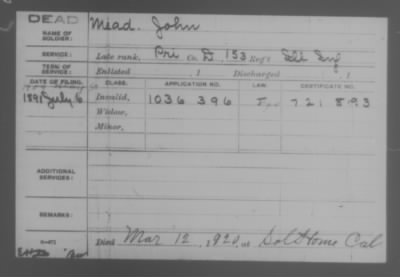 DEAD
NAME OF SOLDIER: Mead, John
SERVICE: Late rank, Pri Co. D, 153 Reg't Ill Inf
TERM OF SERVICE: Enlisted , 1 Discharged , 1
DATE OF FILING. CLASS. APPLICATION NO. LAW. CERTIFICATE NO.
1891 July 6 Invalid, 1036 396 721 893
Widow,
Minor,
ADDITIONAL SERVICES:
REMARKS:
Died Mar 12, 1920, at Sold Home Cal